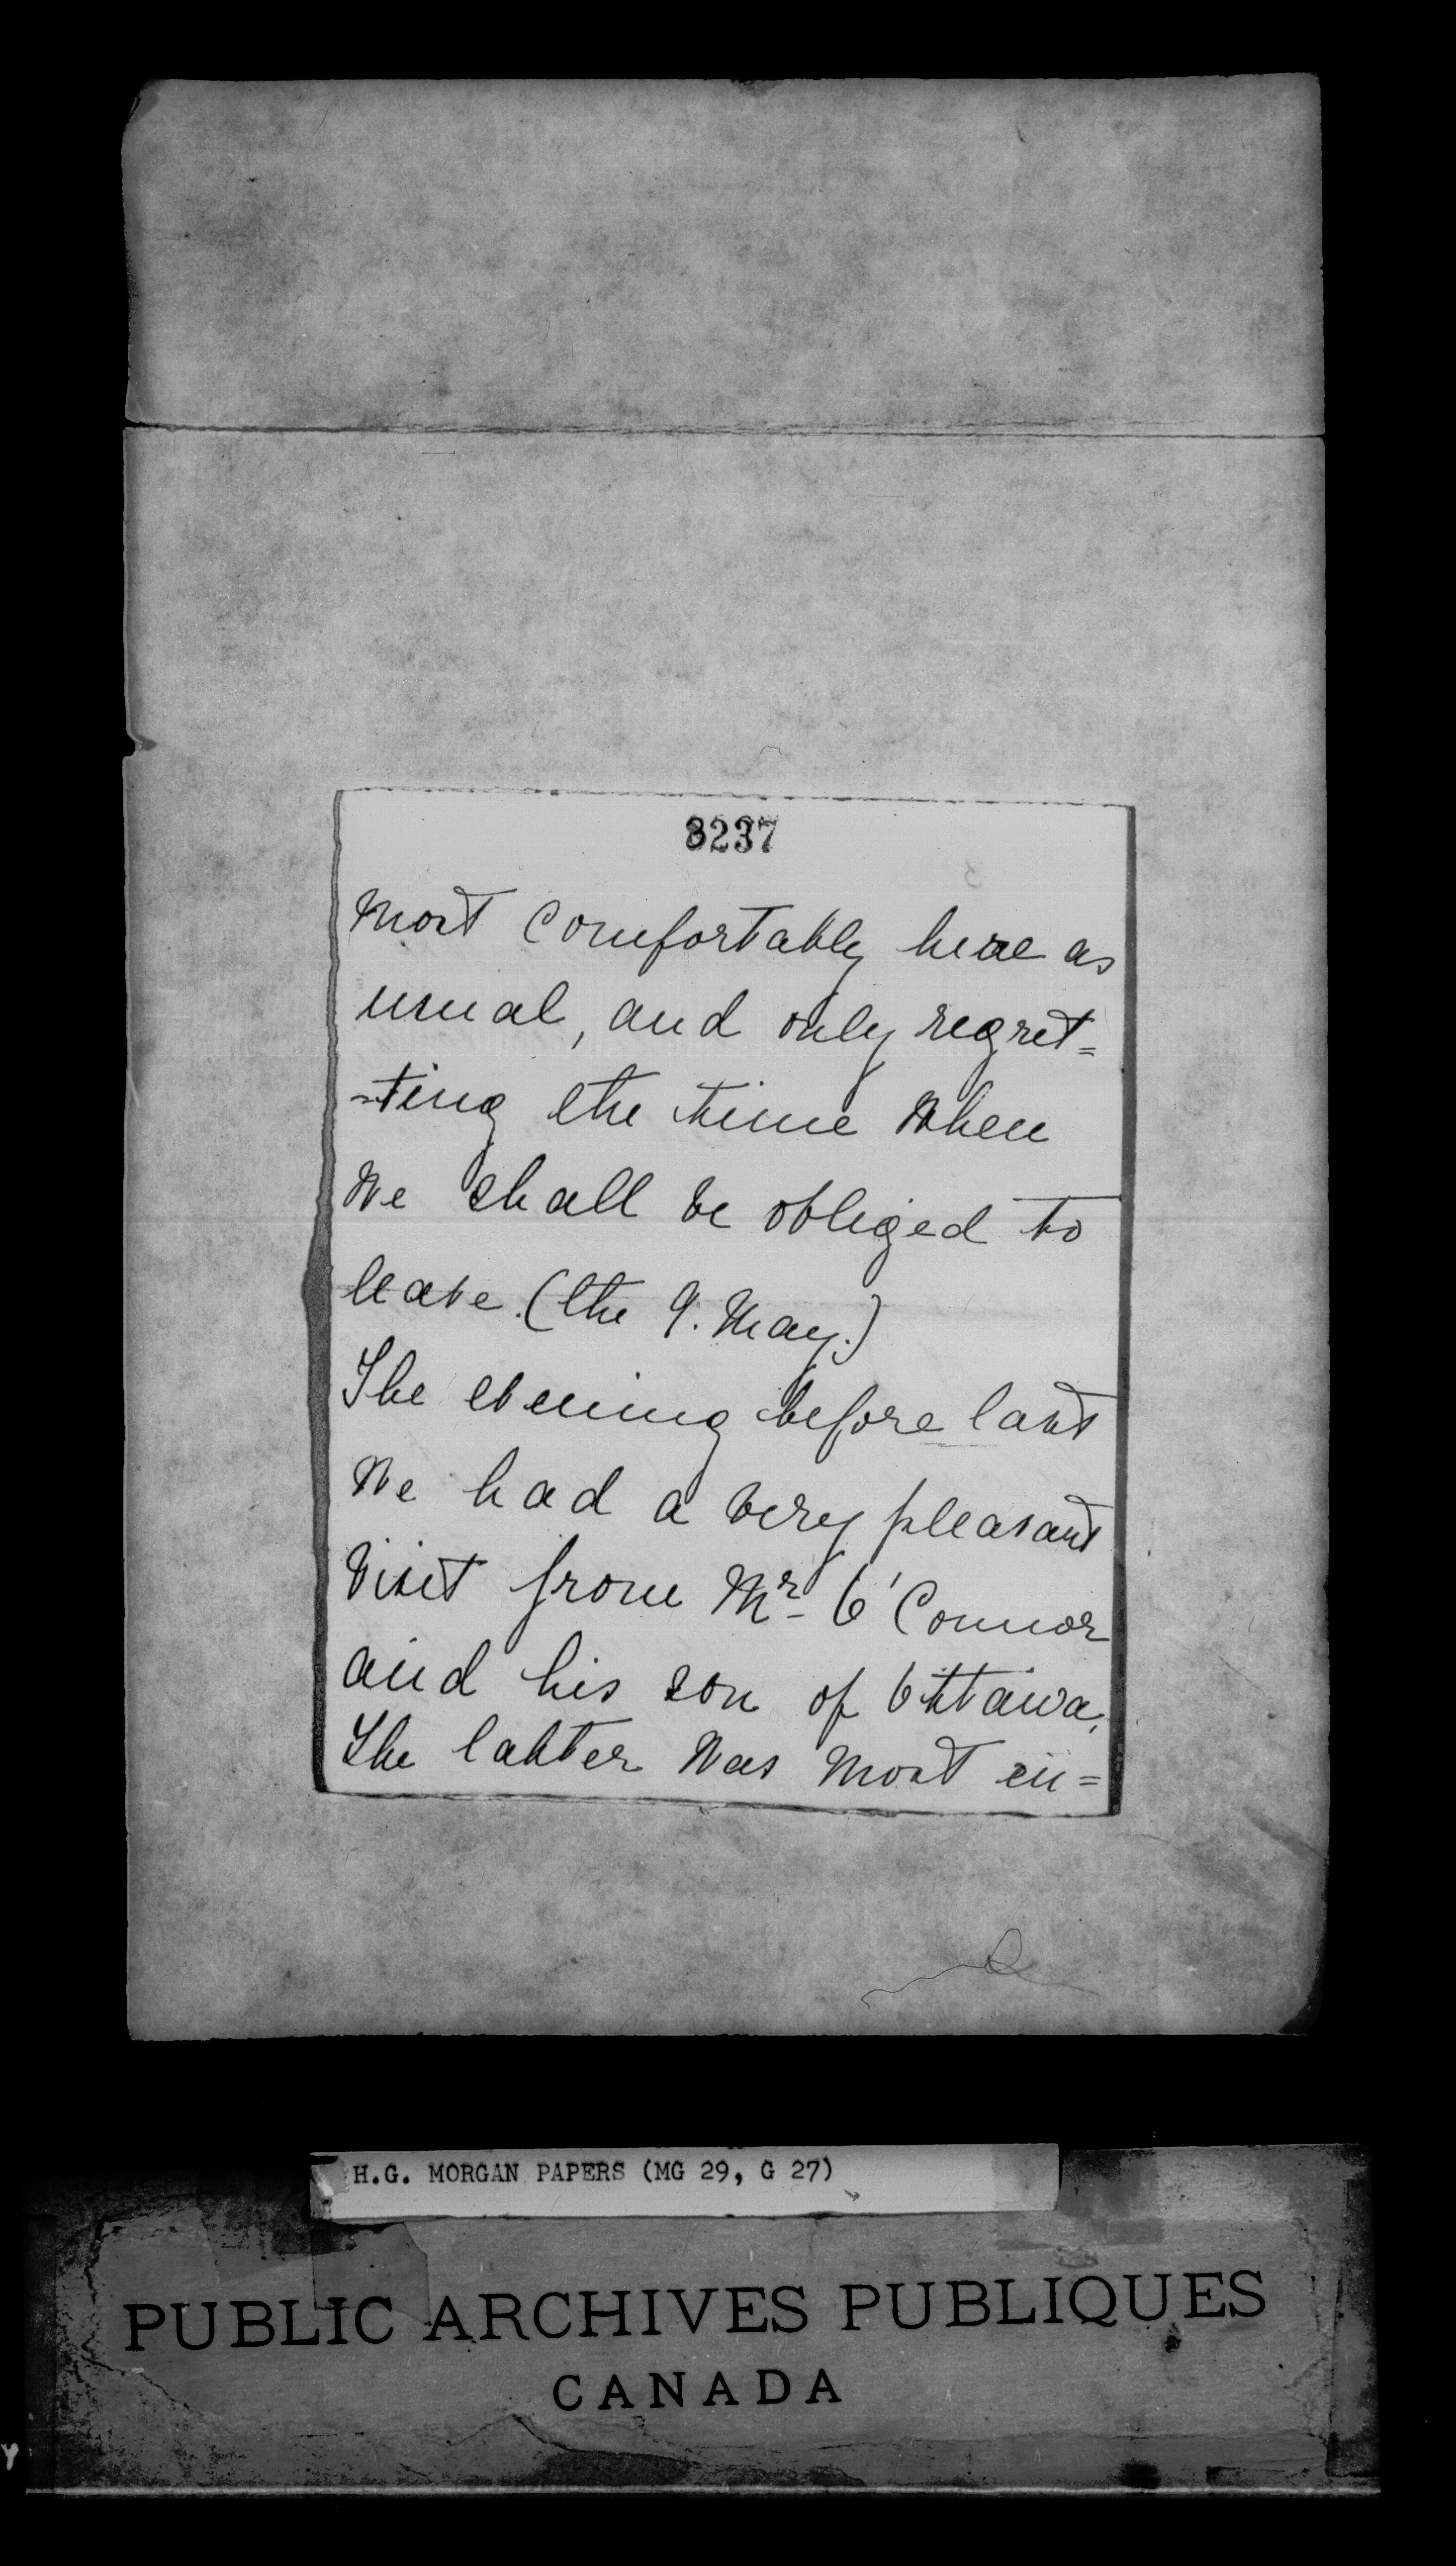 3237
most comfortably here as
usual, and only regret=
=ting the time when
we shall be obliged to
leave. (the 9. May.)
The evening before last
we had a very pleasant
visit from Mr. O'Connor
and his son of Ottawa,
The latter was most in=
H.G. MORGAN PAPERS (MG 29, G 27)
PUBLIC ARCHIVES PUBLIQUES
CANADA